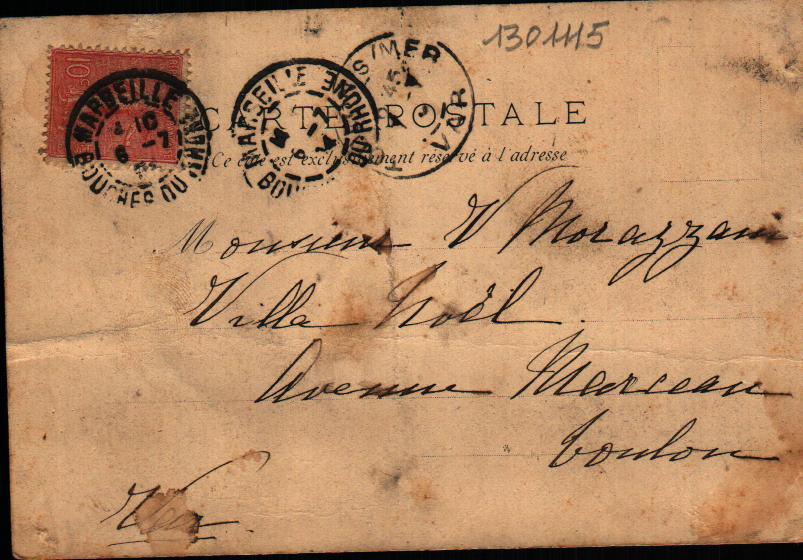 1301115
10c
MARSEILLE
4 10
6 -7
BOUCHES DU RHONE
MARSEILLE
BOUCHES DU RHONE
S/MER
VAR
CARTE POSTALE
Ce côté est exclusivement réservé à l'adresse
Monsieur V Morazzani
Villa Noël
Avenue Marceau
Toulon
Var